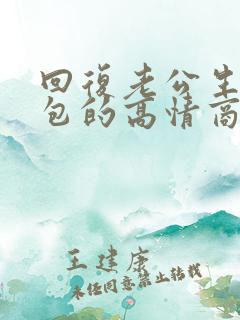 回復老公生
包的高情商
王建康
未经同意禁止转载